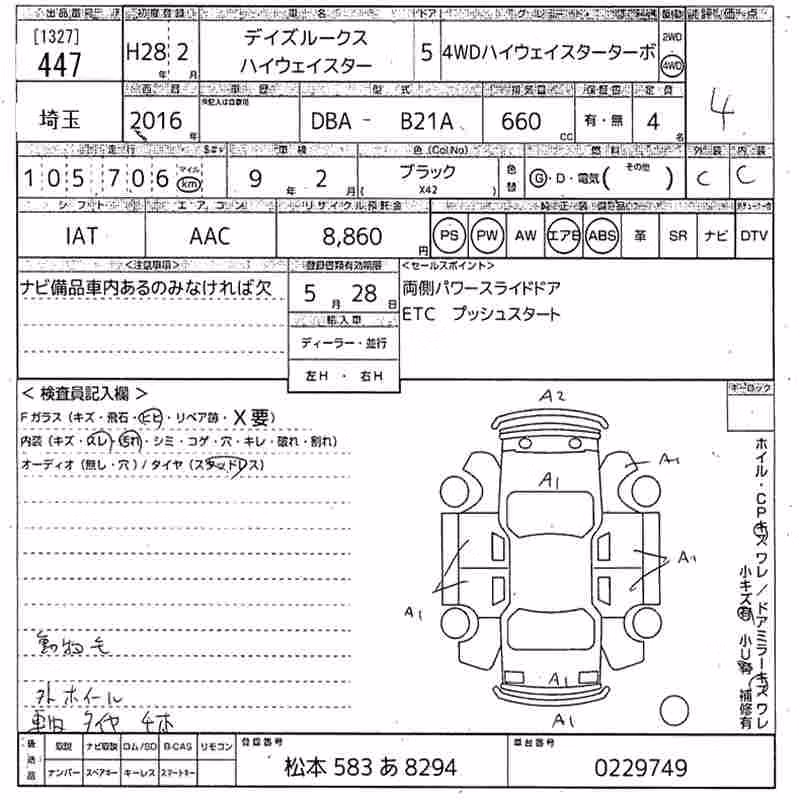 出品番号 初度登録 車名 ドア グレード 評価点
[1327]
447
H28年 2月
デイズルークス
ハイウェイスター
5
4WDハイウェイスターターボ
2WD
4WD
4
埼玉
西暦 車歴 型式 排気量 保証書 定員
2016年
DBA - B21A
660cc
有・無
4名
走行 車検 色(Col.No) 燃料 外装 内装
105706
マイル
km
9年 2月
ブラック
( X42 )
色替
G・D・電気( その他 )
C C
シフト エアコン リサイクル預託金 純正装備品
IAT AAC 8,860円
PS PW AW エアB ABS 革 SR ナビ DTV
<注意事項> 登録書類有効期限 <セールスポイント>
ナビ備品車内あるのみなければ欠
5月 28日
両側パワースライドドア
ETC プッシュスタート
輸入車
ディーラー・並行
左H ・ 右H
<検査員記入欄>
Fガラス (キズ・飛石・ヒビ・リペア跡・X要)
内装 (キズ・スレ・汚れ・シミ・コゲ・穴・キレ・破れ・割れ)
オーディオ (無し・穴) / タイヤ (スタッドレス)
キーロック
A2
A1
A1
A1
A1
A1
A1
ホイル・CPキズ ワレ/ドアミラーキズ ワレ
小キズ有 小U有 補修有
動物毛
外ホイール
車内 タイヤ 4本
後送品
取説 ナビ取説 ロム/SD B-CAS リモコン
ナンバー スペアキー キーレス スマートキー
登録番号
松本 583 あ 8294
車台番号
0229749